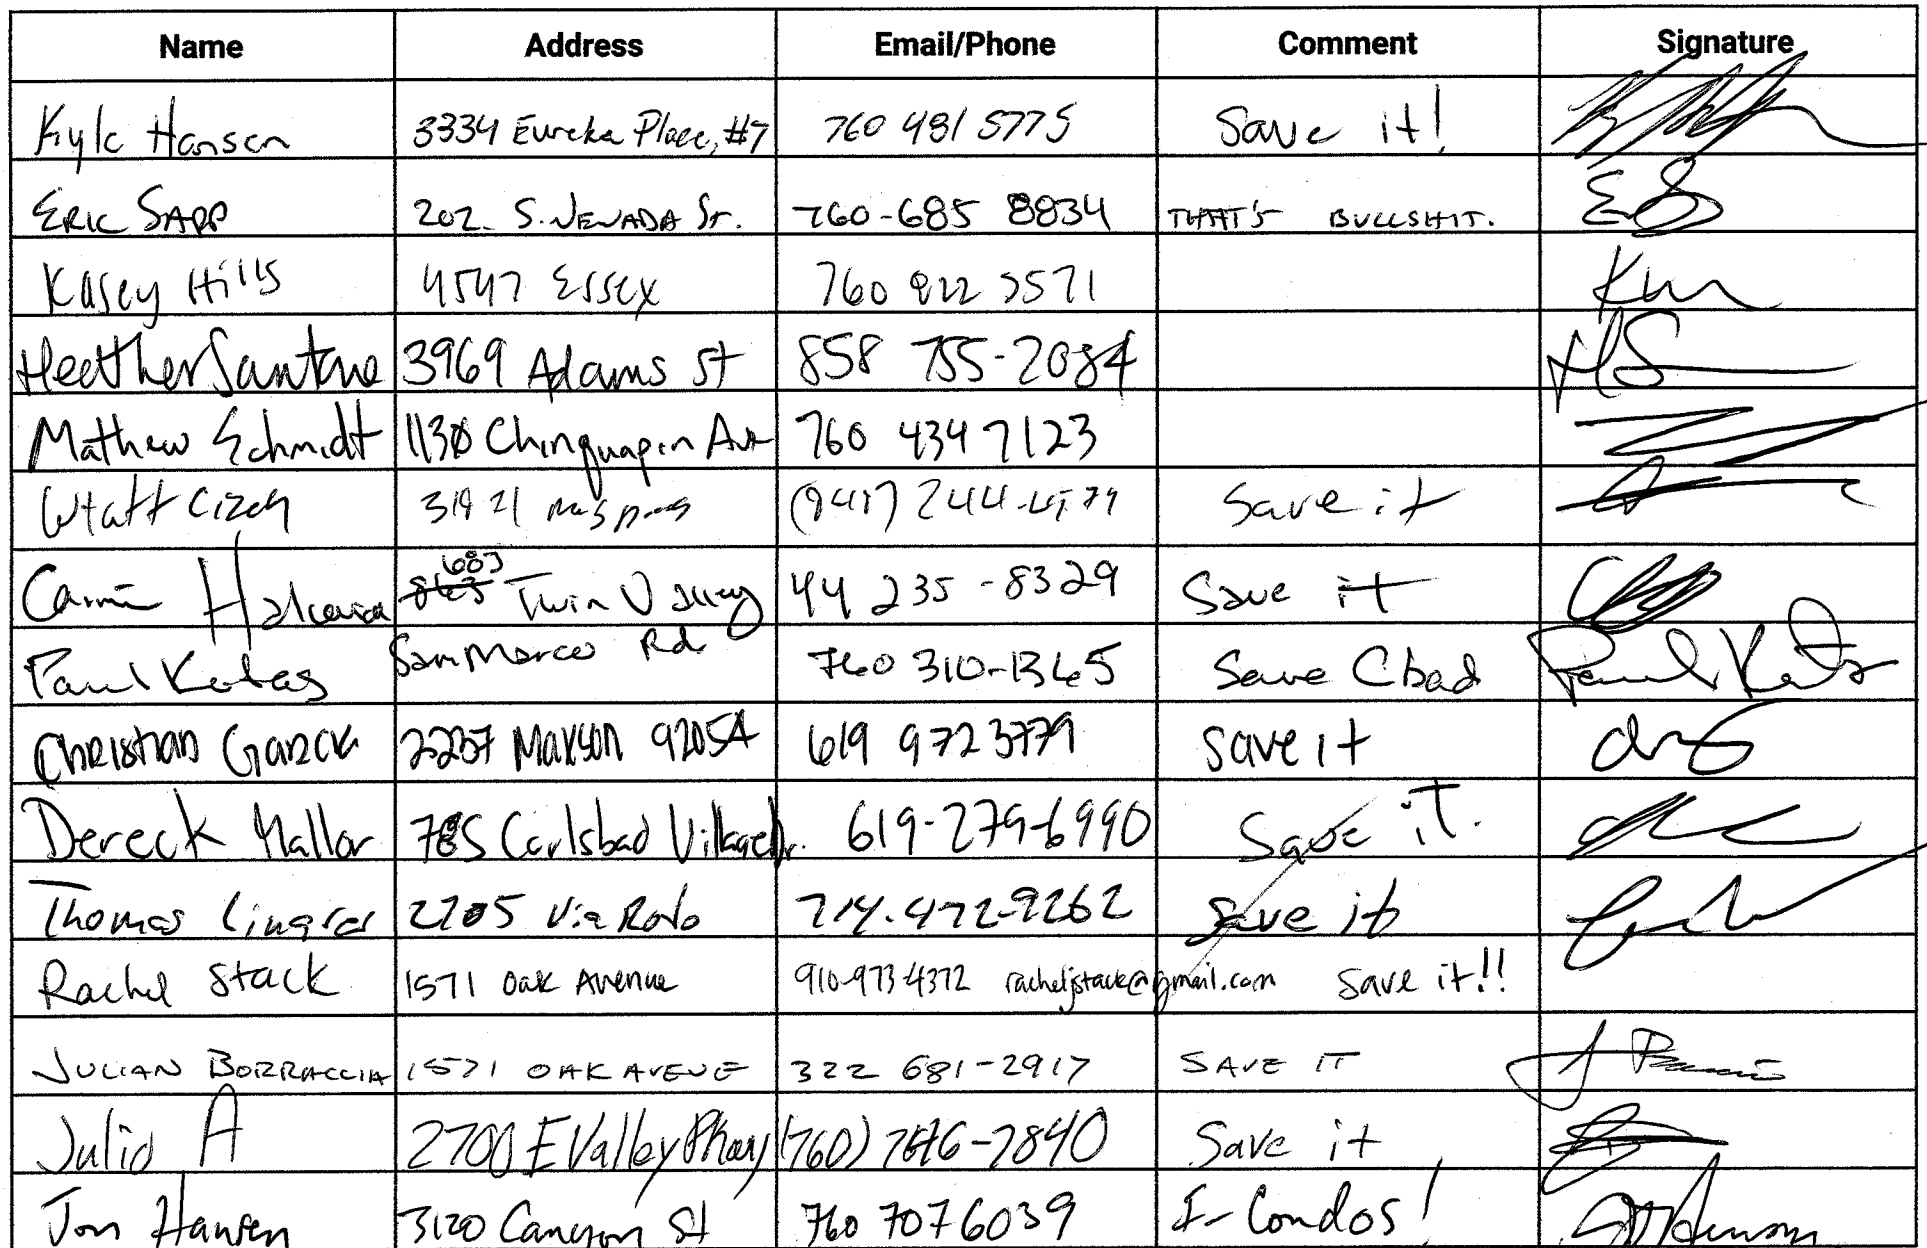 Name Address Email/Phone Comment Signature
Kyle Hansen 3334 Eureka Place, #7 760 481 5775 Save it!
ERIC SAPP 202 S. NEVADA ST. 760-685 8834 THAT'S BULLSHIT.
Kasey Hills 4547 Essex 760 822 5571
Heather Santane 3969 Adams St 858 755-2084
Mathew Schmidt 1130 Chinquapin Ave 760 434 7123
Wyatt Save it
683
Twin Valley 44 235-8329 Save it
Paul San Marcos Rd 760 310-1365 Save Cbad
CHRISTIAN GARCIA 2237 MAXSON 92054 619 972 3779 save it
Dereck Mallor 785 Carlsbad Village Dr. 619-279-6990 Save it.
Thomas 2705 Via Rodo 714.472-9262 save it
Rachel Stack 1571 Oak Avenue 910-973-4372 racheljstack@gmail.com Save it!!
JULIAN BORRACCIA 1571 OAK AVEUE 322 681-2917 SAVE IT
Julio A 2700 E Valley Pkwy (760) Save it
Jon Hansen 3120 Canyon St 760 707 6039 F- Condos!